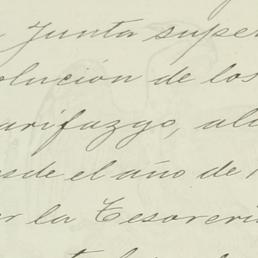 Junta super
olución de los
arifazgo, al
esde el año de 1
or la Tesorerí